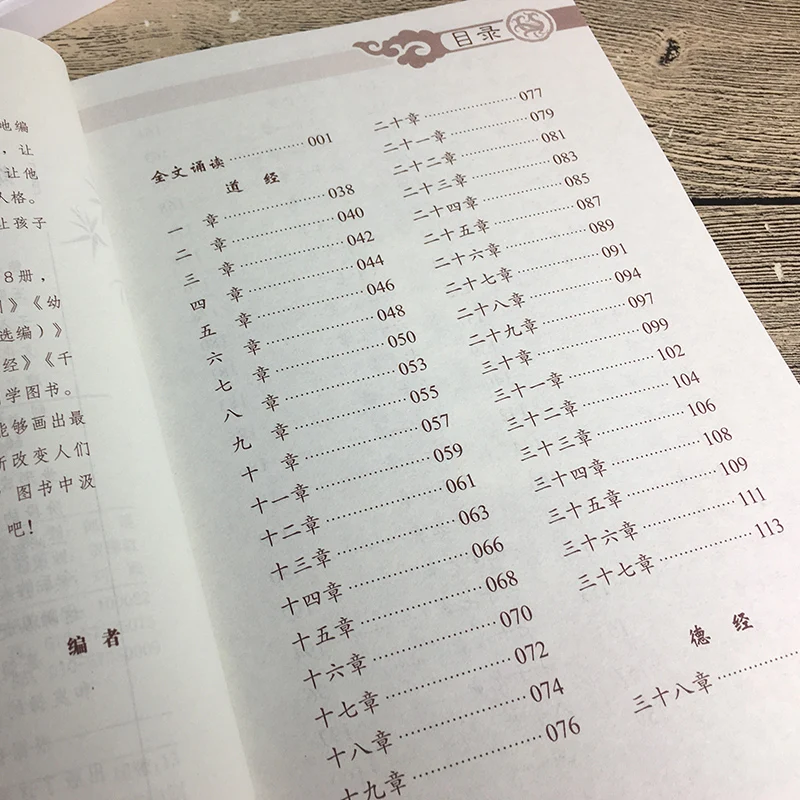 地编
，让
让他
人格。
让孩子
8册，
》《幼
选编）》
经》《千
学图书。
能够画出最
所改变人们
图书中汲
吧！
编者
目录
全文诵读 001
道经
一章 038
二章 040
三章 042
四章 044
五章 046
六章 048
七章 050
八章 053
九章 055
十章 057
十一章 059
十二章 061
十三章 063
十四章 066
十五章 068
十六章 070
十七章 072
十八章 074
十九章 076
二十章 077
二十一章 079
二十二章 081
二十三章 083
二十四章 085
二十五章 087
二十六章 089
二十七章 091
二十八章 094
二十九章 097
三十章 099
三十一章 102
三十二章 104
三十三章 106
三十四章 108
三十五章 109
三十六章 111
三十七章 113
德经
三十八章